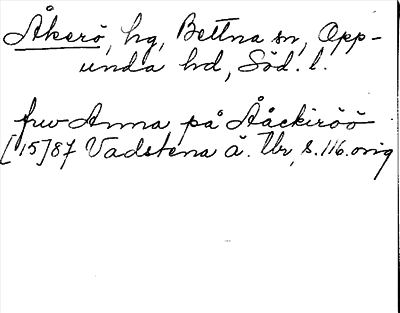 Åkerö, hg, Bettna sn, Opp-
unda hd, Söd. l.
frw Anna på Ååckiröö
[15]87 Vadstena ä. Ubr, s.116.orig